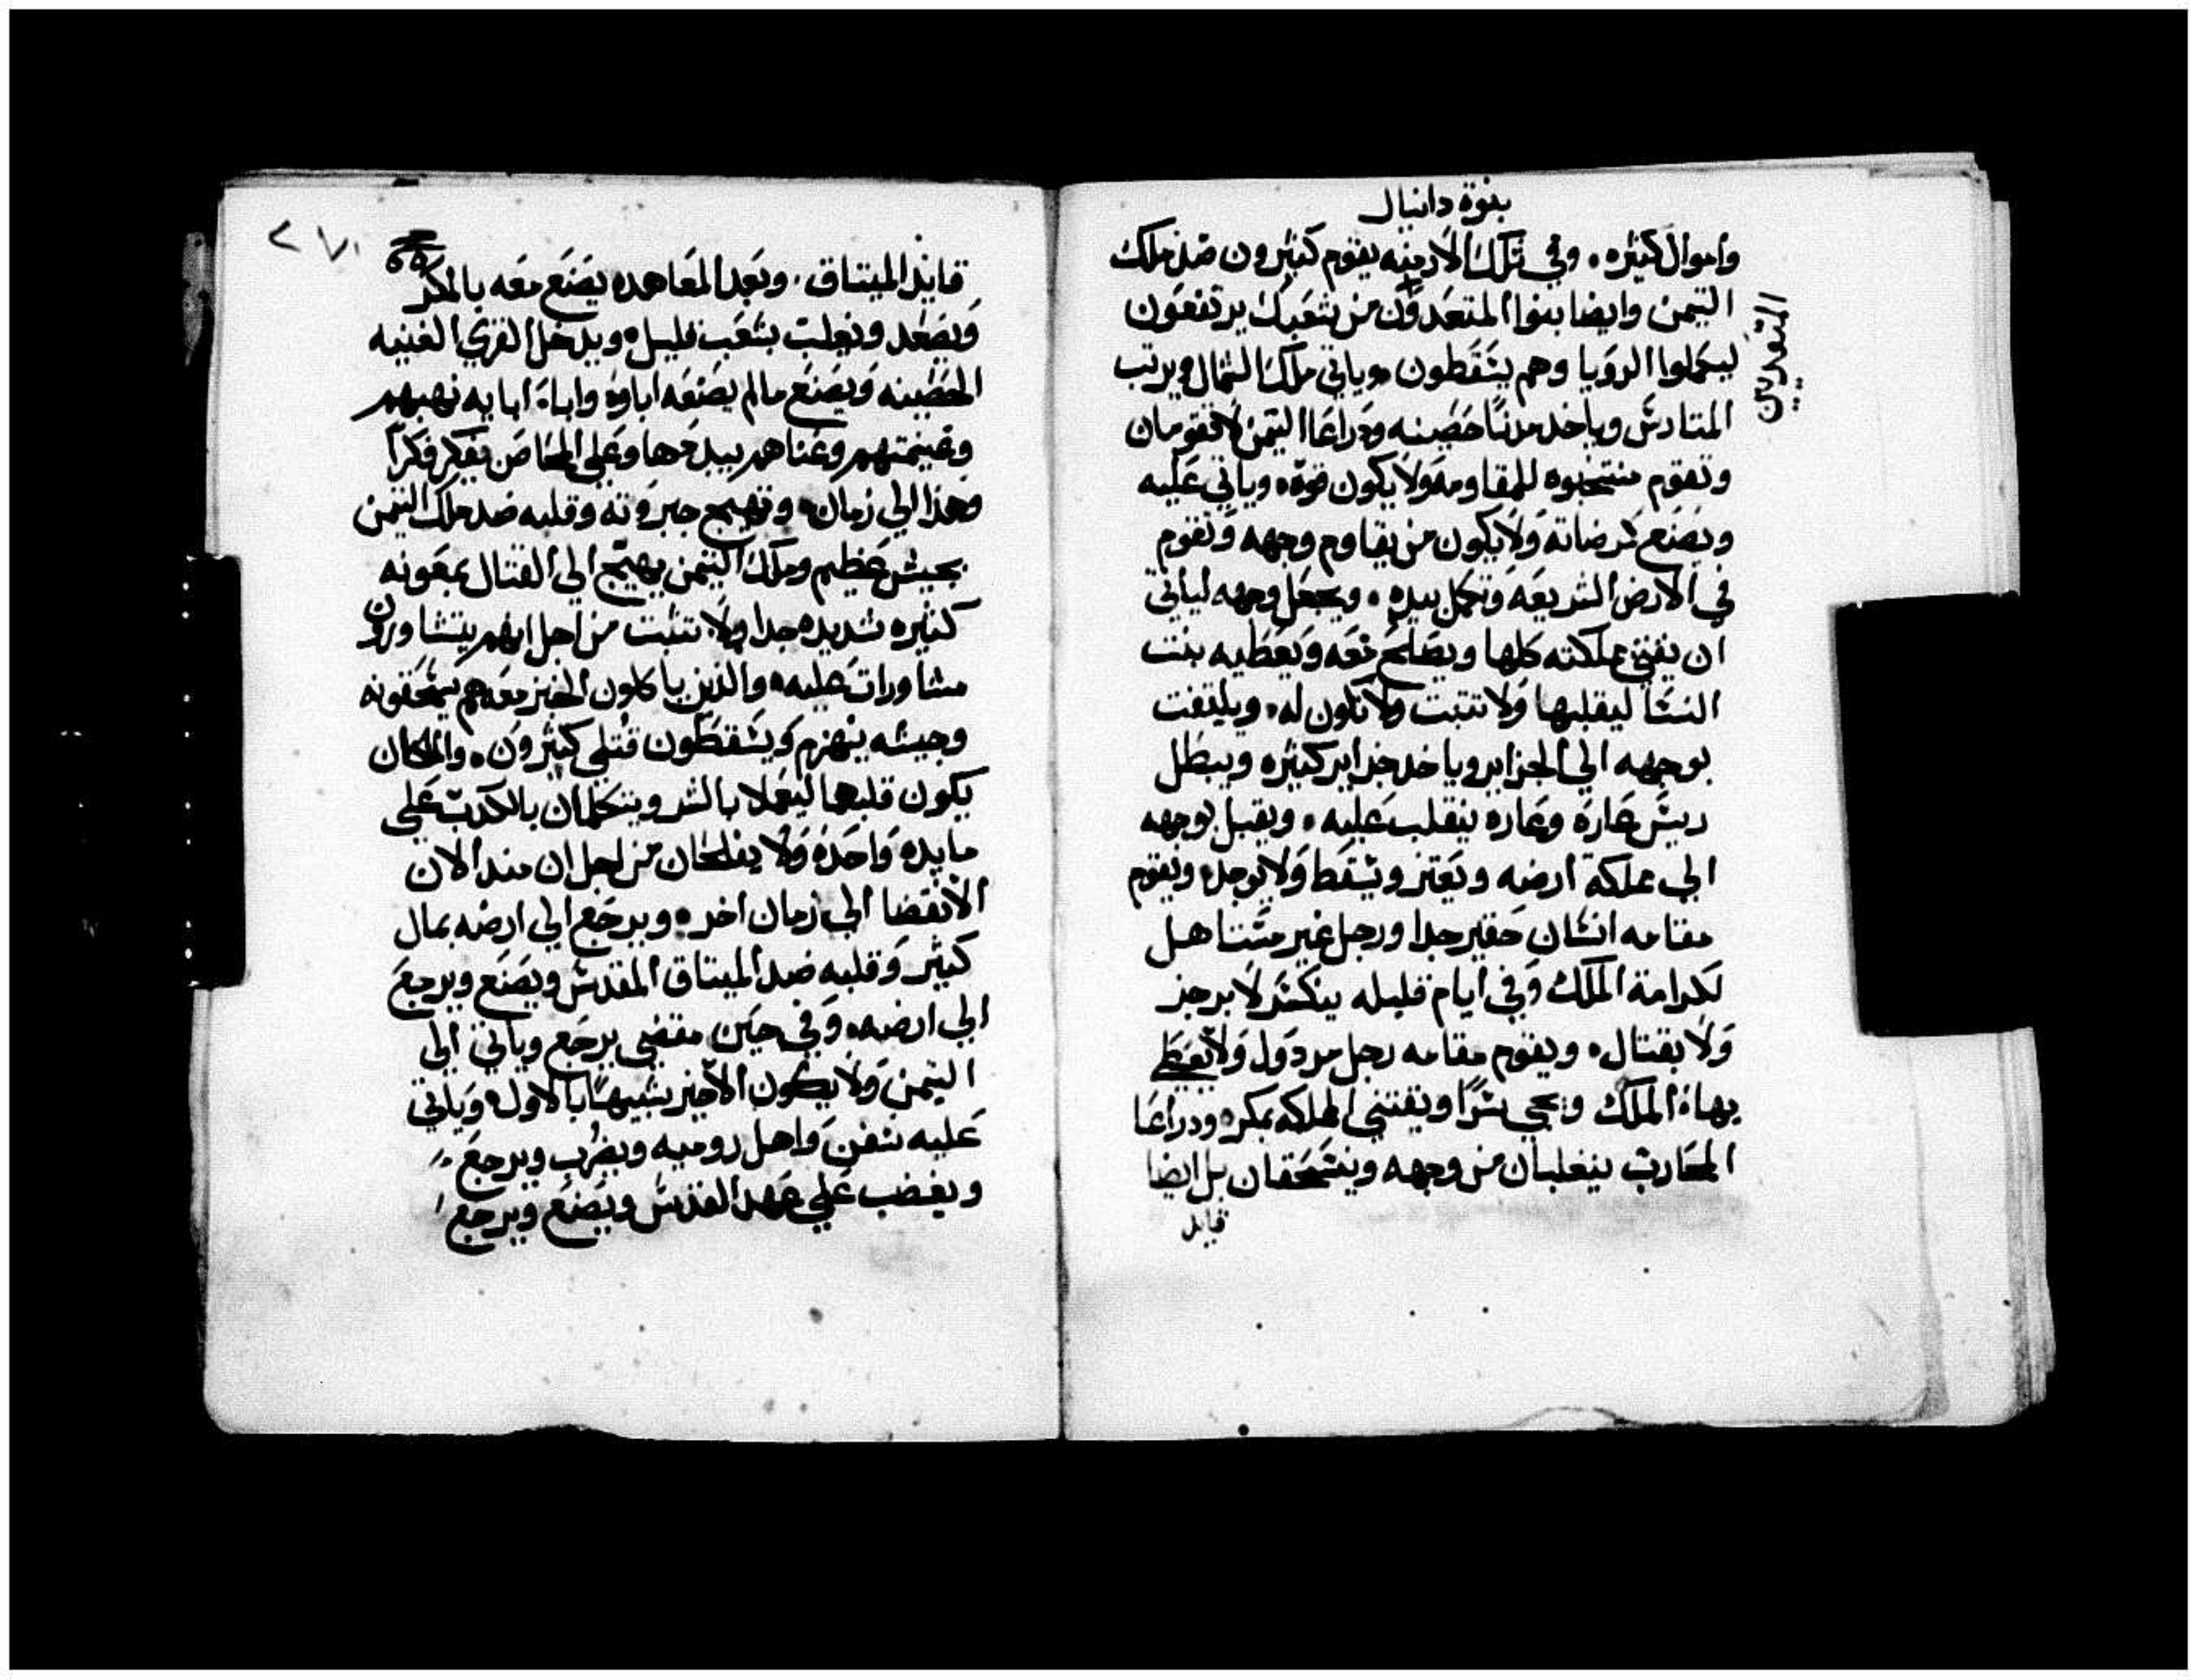 بنوة دانيال
واموال كثيره. وفي تلك الازمنه يقوم كثيرون ضد ملك
التيمن وايضا بنوا المتعدون من شعبك يرتفعون
المتعديين
ليكملوا الرويا وهم يسقطون. وياتي ملك الشمال ويرتب
المتارس وياخد مدنًا حصينه ودراعا التيمن لا تقومان
وتقوم منتخبوه للمقاومه ولا يكون قوة. وياتي عليه
ويصنع كرضاته ولا يكون من يقاوم وجهه وتقوم
في الارض الشريعه وتكمل بيده. ويجعل وجهه لياتي
ان يقني مملكته كلها ويصلح معه ويعطيه بنت
النسا ليقلبها ولا تتبت ولا تكون له. ويلتفت
بوجهه الي الجزاير وياخد جزاير كثيره ويبطل
ريس عاره وعاره ينقلب عليه. ويقبل بوجهه
الي مملكة ارضه ويعتر ويسقط ولا يوجد. ويقوم
مقامه انسان حقير جدا ورجل غير مستاهل
لكرامة الملك وفي ايام قليله ينكسر لا برجز
ولا بقتال. ويقوم مقامه رجل مردول ولا يعطي
بهاة الملك ويجي سرًا ويقتني المملكه بمكر. ودراعا
المحارب ينغلبان من وجهه وينسحقان بل ايضا
قايد
٢٧١
قايد الميتاق. وبعد المعاهده يصنع معه بالمكر
ويصعد ويغلب بشعب قليل. ويدخل القري الغنيه
الحصينه ويصنع مالم يصنعه اباوة واباة ابايه نهبهم
وغنيمتهم وغناهم يبددها وعلي المحاصن يفكر فكرًا
وهذا الي زمان. وتهيج جبروته وقلبه ضد ملك التيمن
بجيش عظيم وملك التيمن يهتج الي القتال بمعونه
كثيره شديده جدا ولا تتبت من اجل انهم يتشاورون
مشاورات عليه. والذين ياكلون الخبز معه هم يسحقونه
وجيشه ينهزم ويسقطون قتلي كثيرون. والملكان
يكون قلبهما ليعملا بالشر ويتكلمان بالكدب علي
مايده واحدة ولا يفلحان من اجل ان مند الان
الانقضا الي زمان اخر. ويرجع الي ارضه بمال
كثير وقلبه ضد الميتاق المقدس ويصنع ويرجع
الي ارضه. وفي حين مقضي يرجع وياتي الي
التيمن ولا يكون الاخير شبيهًا بالاول. وياتي
عليه سفن واهل روميه ويضرب ويرجع
ويغضب علي عهد القدس ويصنع ويرجع